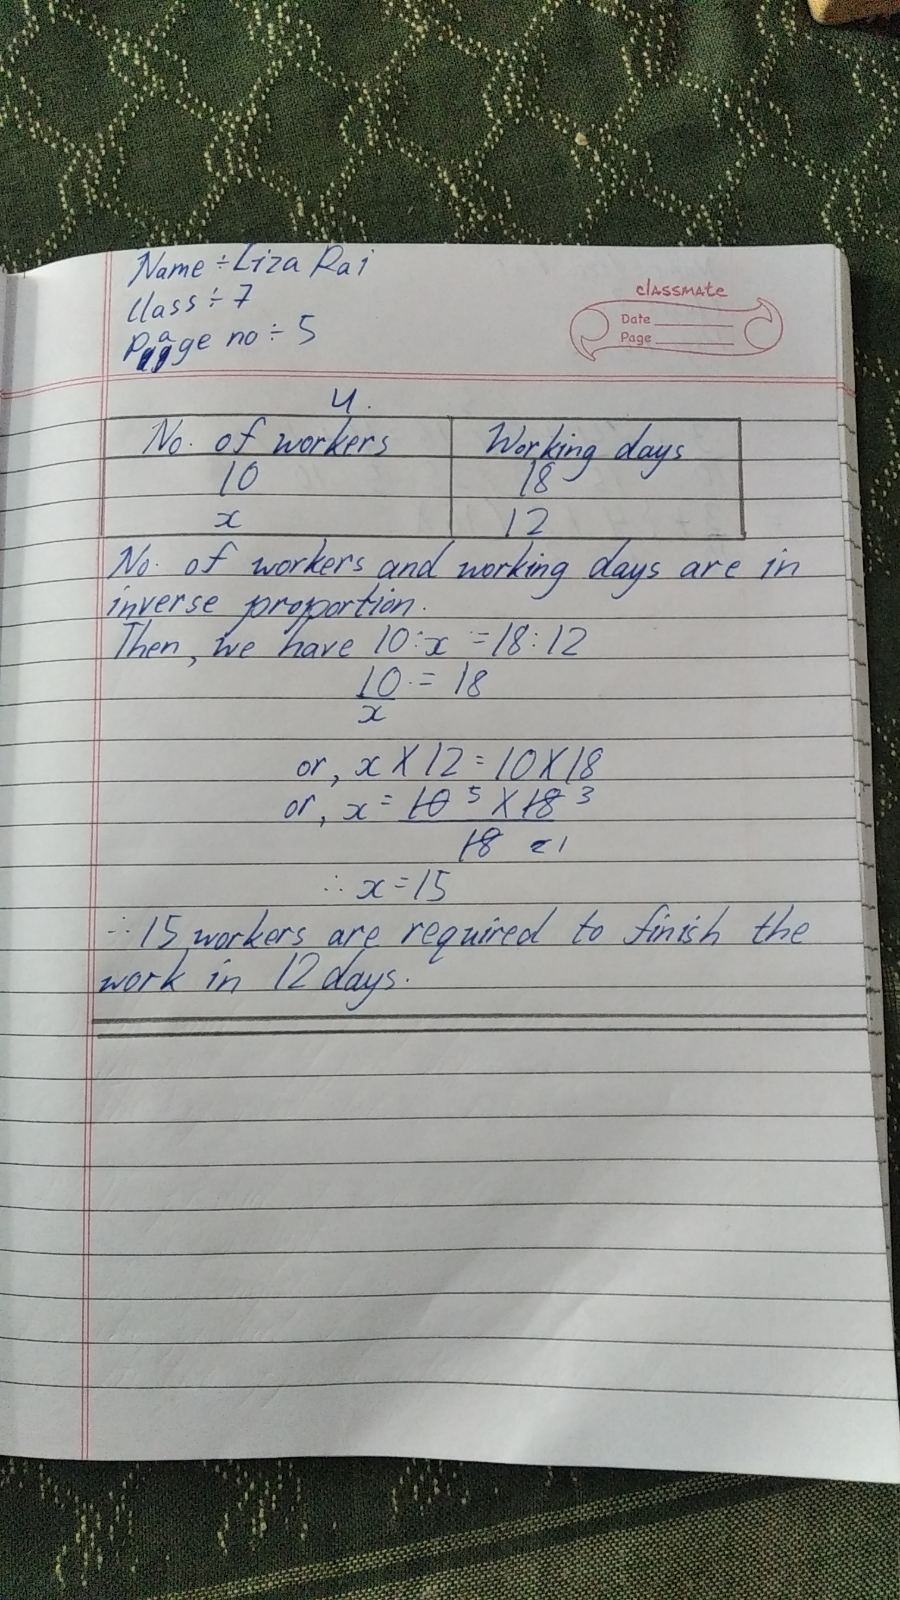 Name ÷ Liza Rai
Class ÷ 7
Page no ÷ 5
classmate
Date
Page
4.
No. of workers Working days
10 18
x 12
No. of workers and working days are in
inverse proportion.
Then, we have 10:x = 18:12
10 = 18
x
or, x X 12 = 10 X 18
or, x = 10 5 X 18 3
18 1
∴ x = 15
∴ 15 workers are required to finish the
work in 12 days.